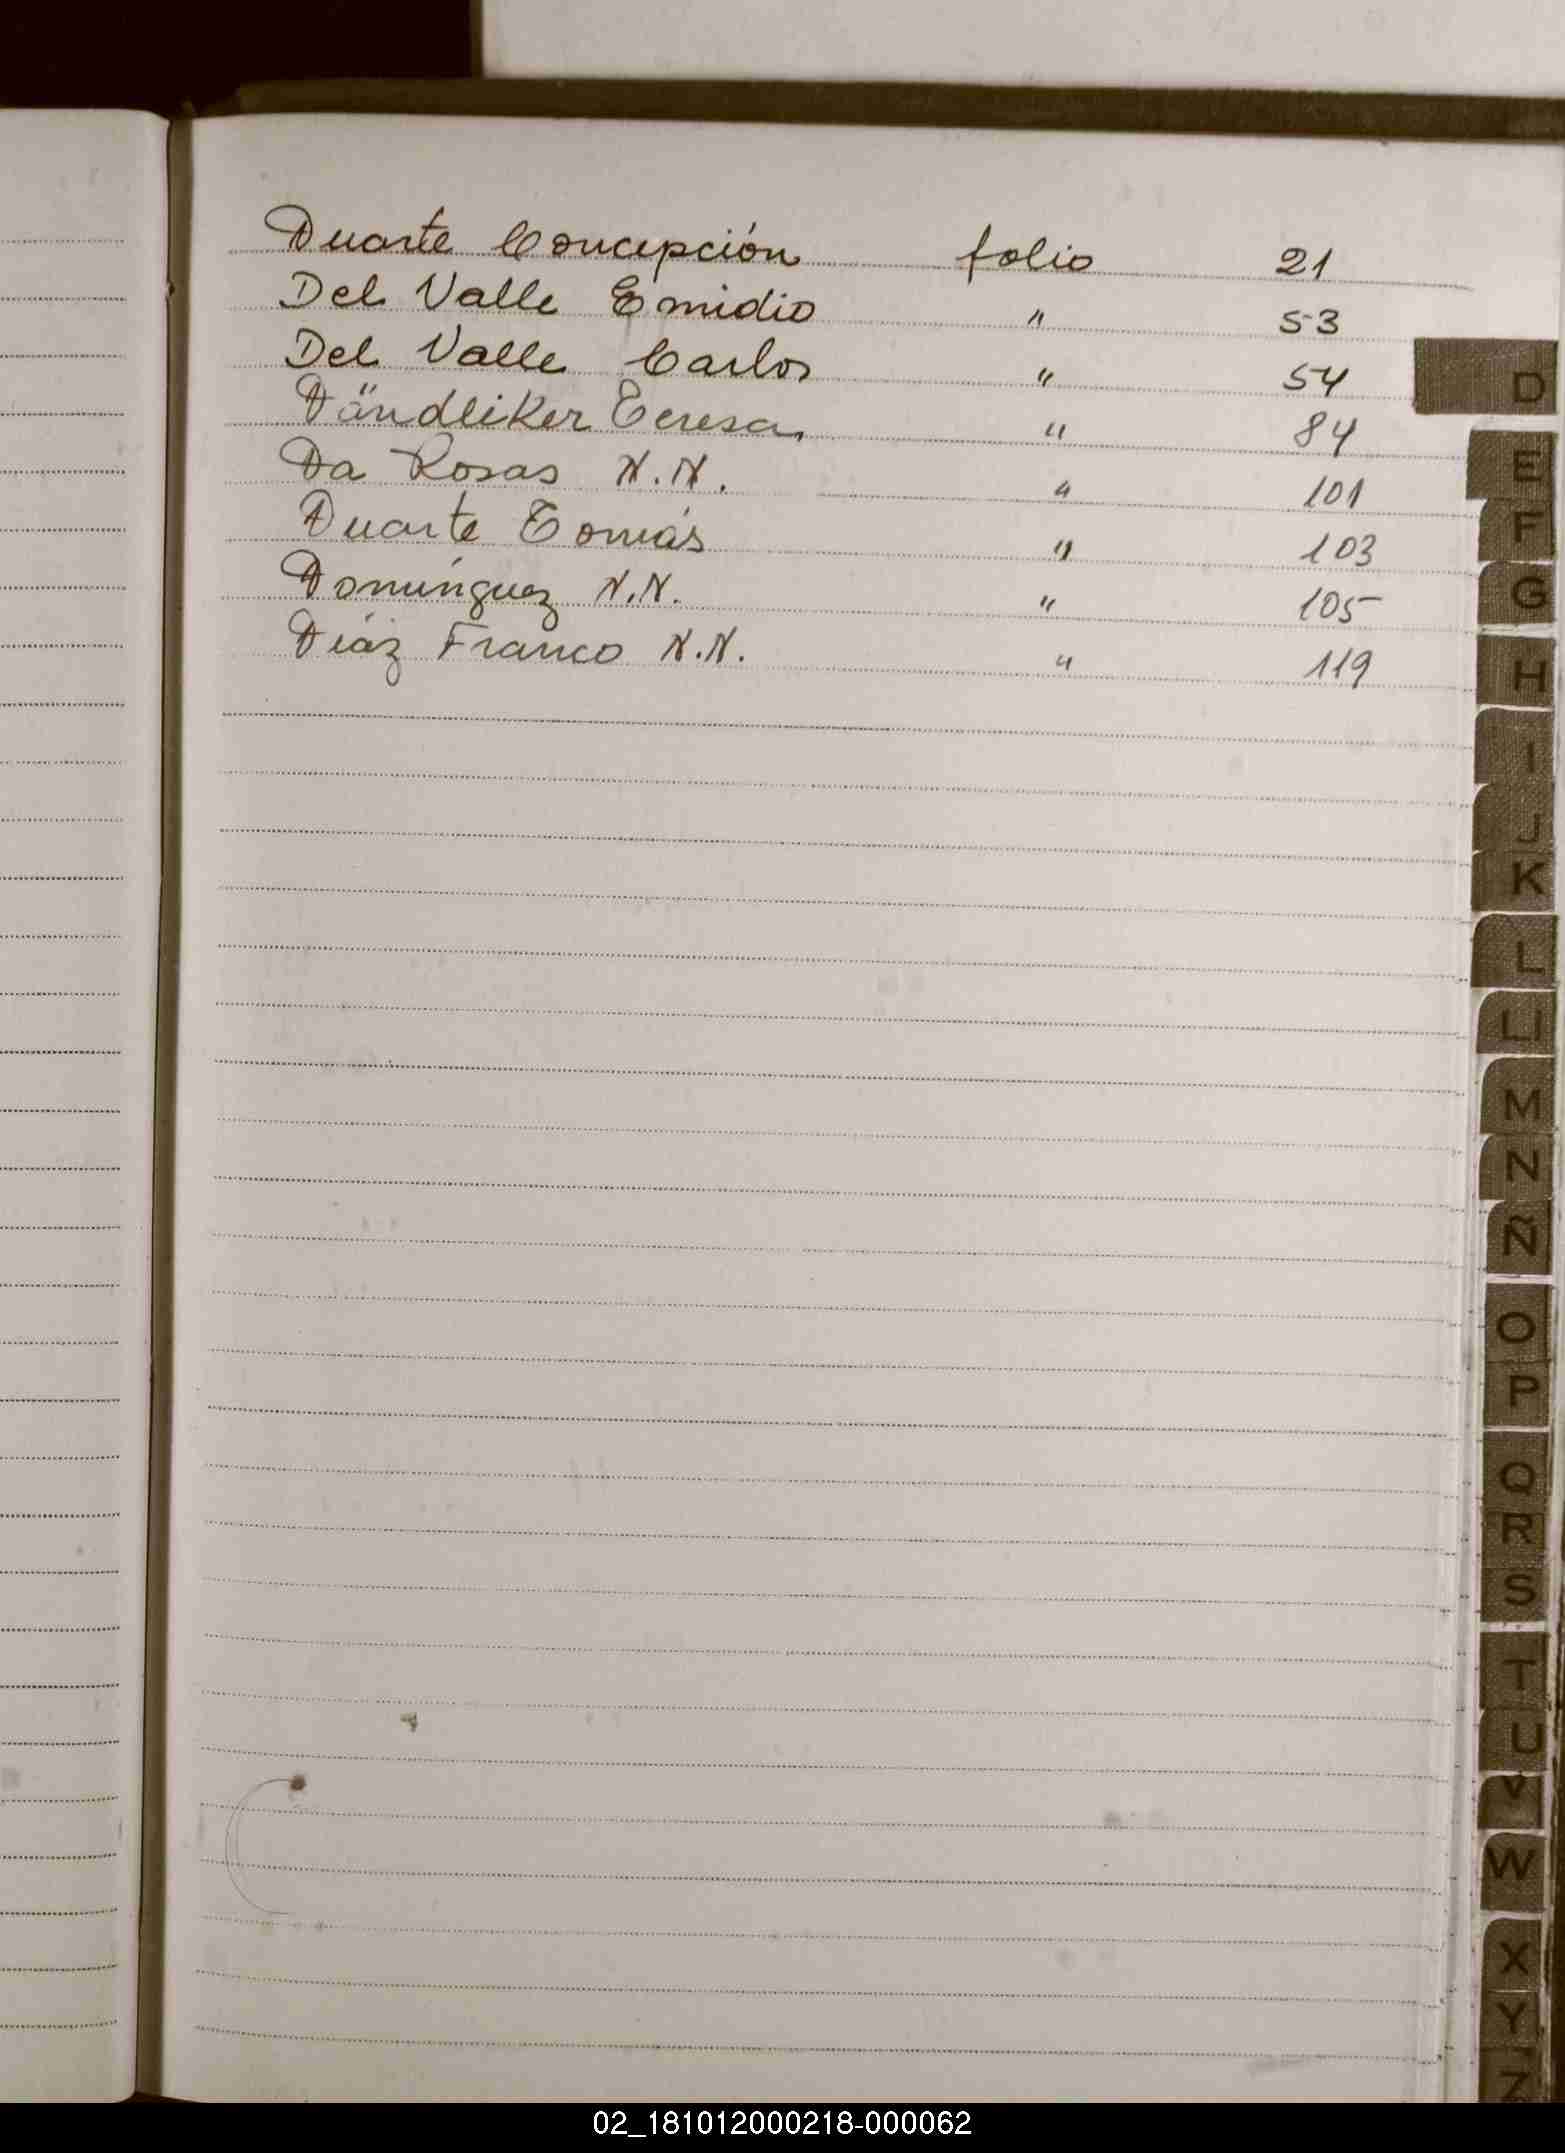 Duarte Concepción folio 21
Del Valle Emidio " 53
Del Valle Carlos " 54
Dändliker Teresa " 84
Da Rosas N.N. " 101
Duarte Tomás " 103
Domínguez N.N. " 105
Díaz Franco N.N. " 119
D
E
F
G
H
I
J
K
L
LL
M
N
Ñ
O
P
Q
R
S
T
U
V
W
X
Y
Z
02_181012000218-000062